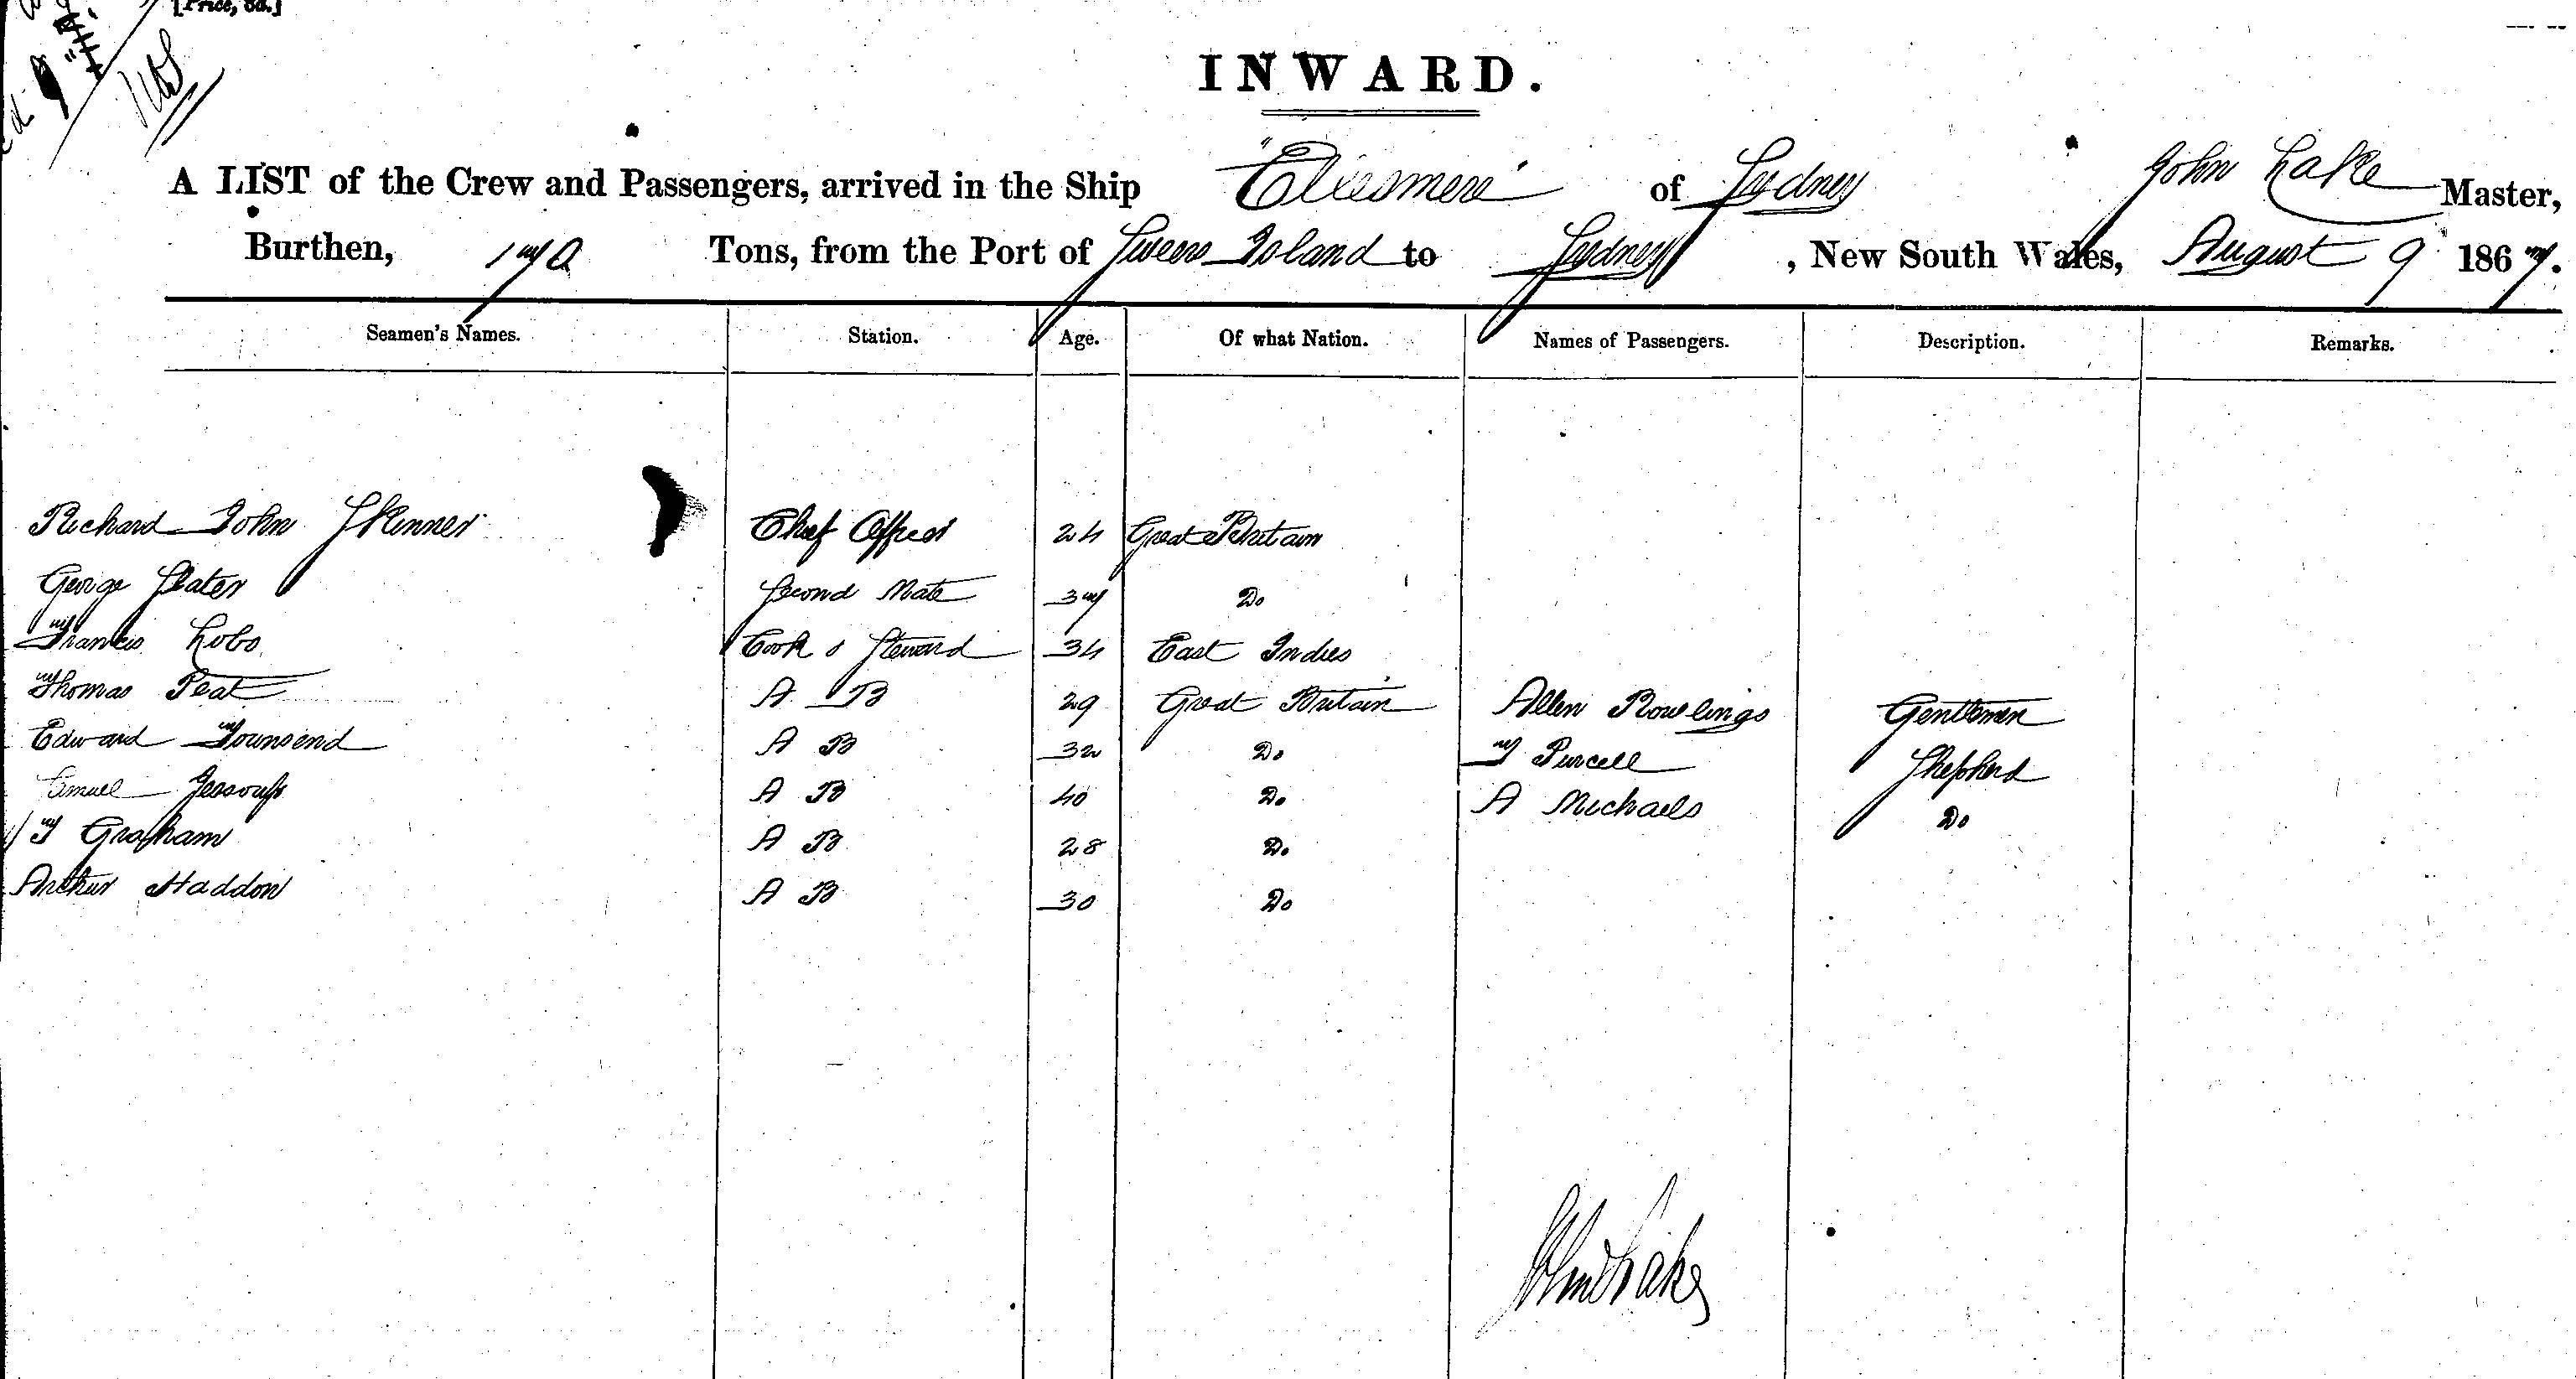 [Price, 3d.]
INWARD.
A LIST of the Crew and Passengers, arrived in the Ship "Ellesmere" of Sydney John Lake Master,
Burthen, 170 Tons, from the Port of Sweers Island to Sydney, New South Wales, August 9 1867.
Seamen's Names. Station. Age. Of what Nation. Names of Passengers. Description. Remarks.
Richard John Skinner Chief Officer 24 Great Britain
George Slater Second Mate 37 Do
Francis Lobo Cook & Steward 34 East Indies
Thomas Peat A B 29 Great Britain Allen Rowlings Gentlemen
Edward Townsend A B 32 Do T Purcell Shepherd
Samuel Jessoup A B 40 Do A Michaels Do
T Graham A B 28 Do
Arthur Haddon A B 30 Do
John Lake